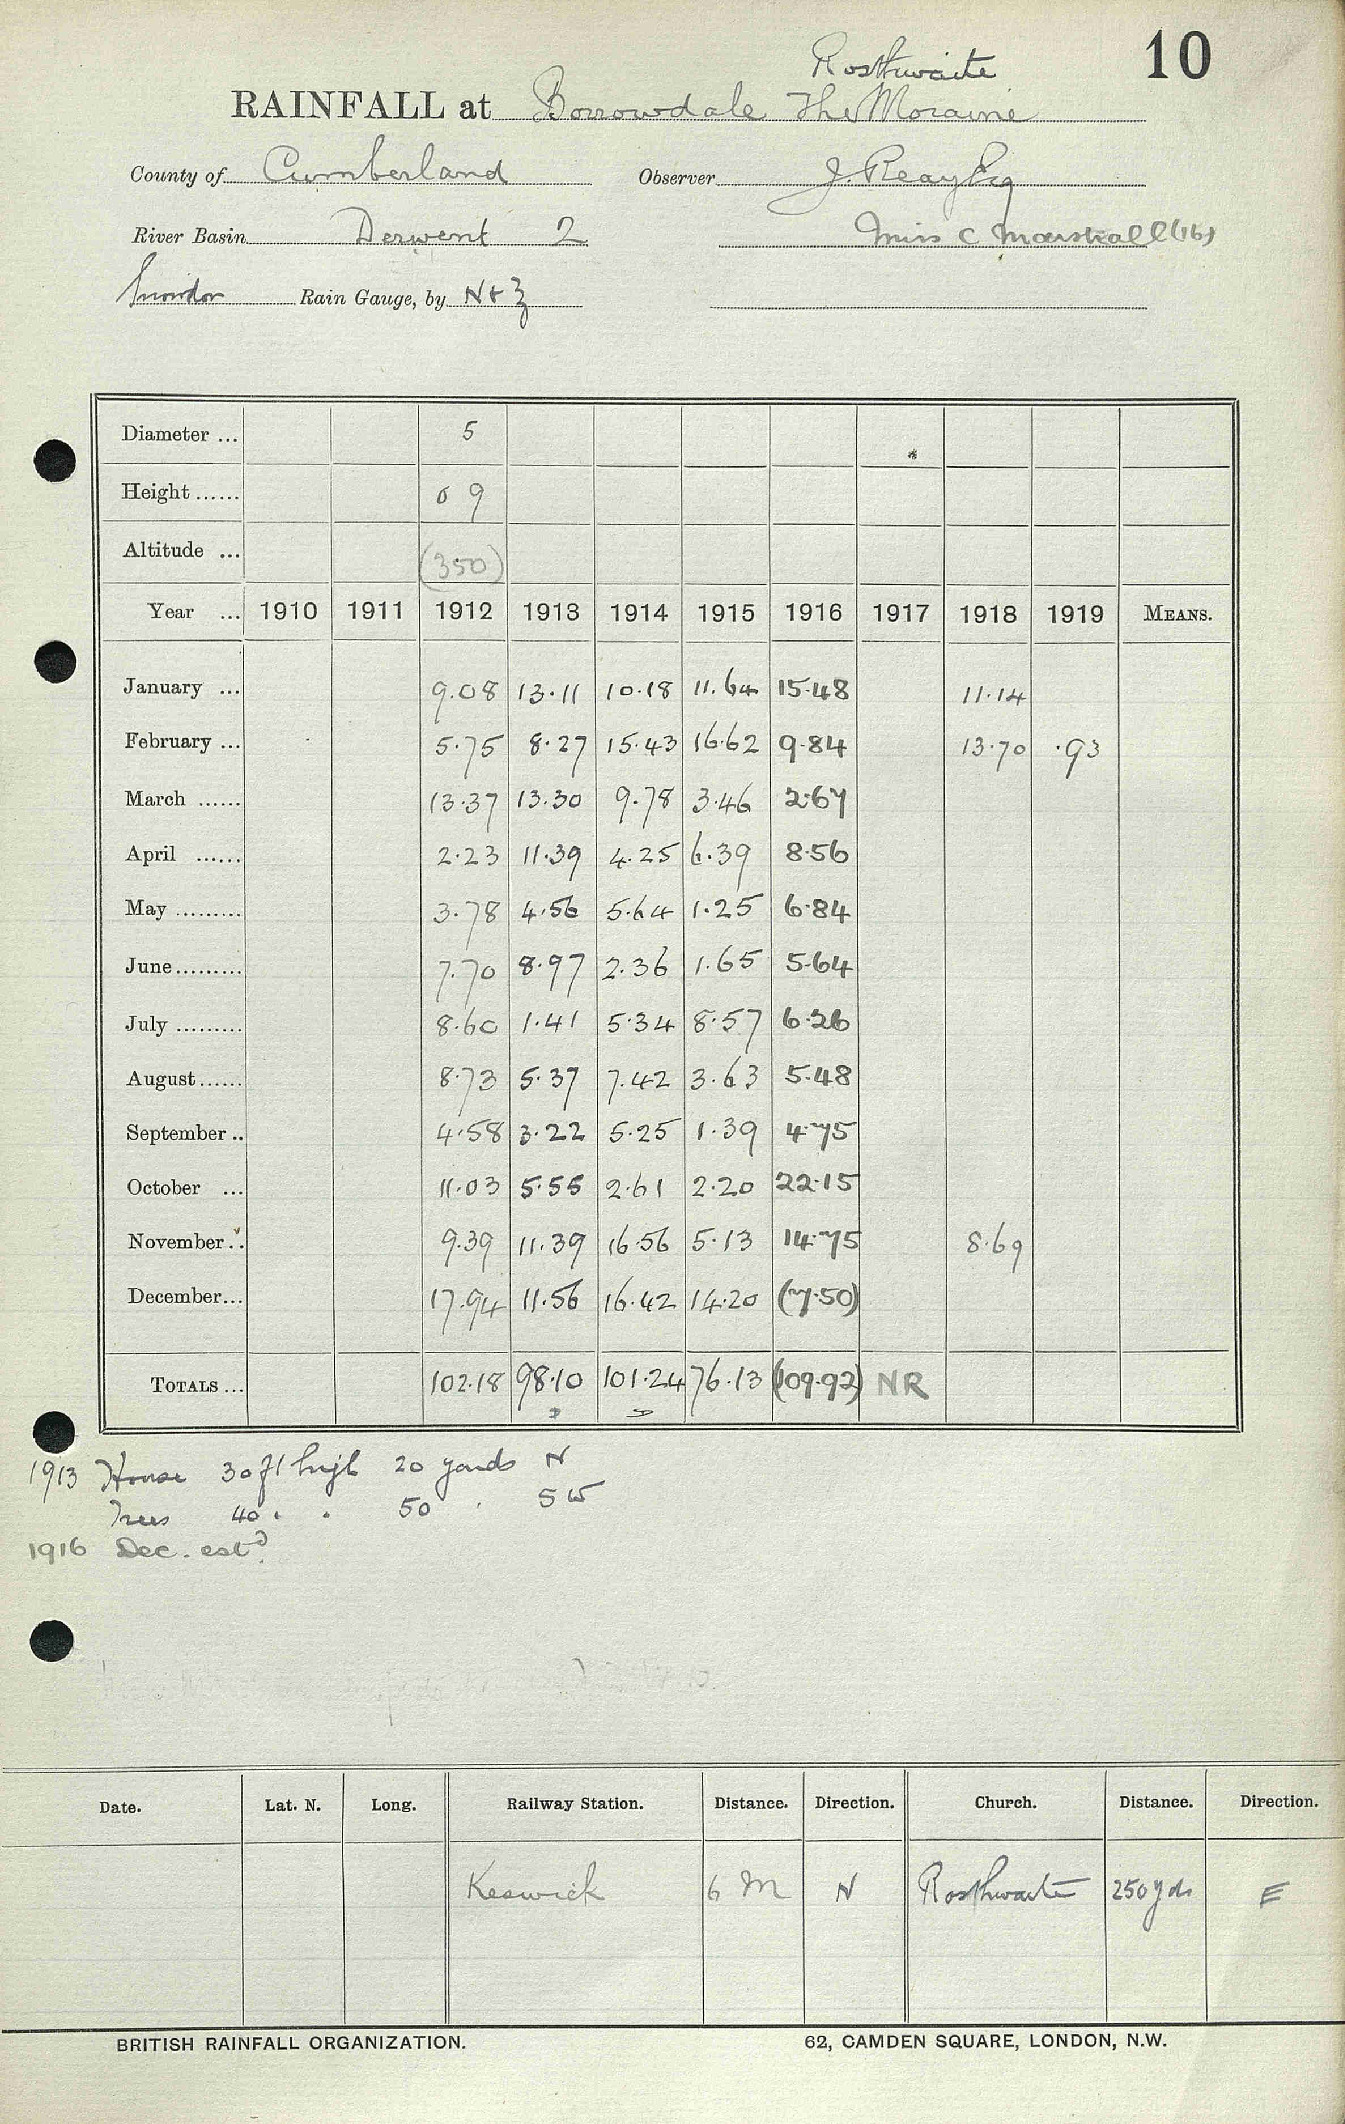 10
Rosthwaite
RAINFALL at Borrowdale The Moraine
County of Cumberland Observer J. Reay Esq
River Basin Derwent 2 Miss C Marshall (16)
Snowdon Rain Gauge, by N & Z
Diameter ... 5
Height ...... 0 9
Altitude ... (350)
Year ... 1910 1911 1912 1913 1914 1915 1916 1917 1918 1919 MEANS.
January ... 9.08 13.11 10.18 11.64 15.48 11.14
February ... 5.75 8.27 15.43 16.62 9.84 13.70 .93
March ...... 13.37 13.30 9.78 3.46 2.67
April ...... 2.23 11.39 4.25 6.39 8.56
May ......... 3.78 4.56 5.64 1.25 6.84
June......... 7.70 8.97 2.36 1.65 5.64
July ......... 8.60 1.41 5.34 8.57 6.26
August...... 8.73 5.37 7.42 3.63 5.48
September .. 4.58 3.22 5.25 1.39 4.75
October ... 11.03 5.55 2.61 2.20 22.15
November .. 9.39 11.39 16.56 5.13 14.75 8.69
December... 17.94 11.56 16.42 14.20 (7.50)
TOTALS ... 102.18 98.10 101.24 76.13 (109.92) NR
1913 House 30 ft high 20 yards N
Trees 40 " " 50 " SW
1916 Dec. estd.
Date. Lat. N. Long. Railway Station. Distance. Direction. Church. Distance. Direction.
Keswick 6 M N Rosthwaite 250 yds E
BRITISH RAINFALL ORGANIZATION. 62, CAMDEN SQUARE, LONDON, N.W.